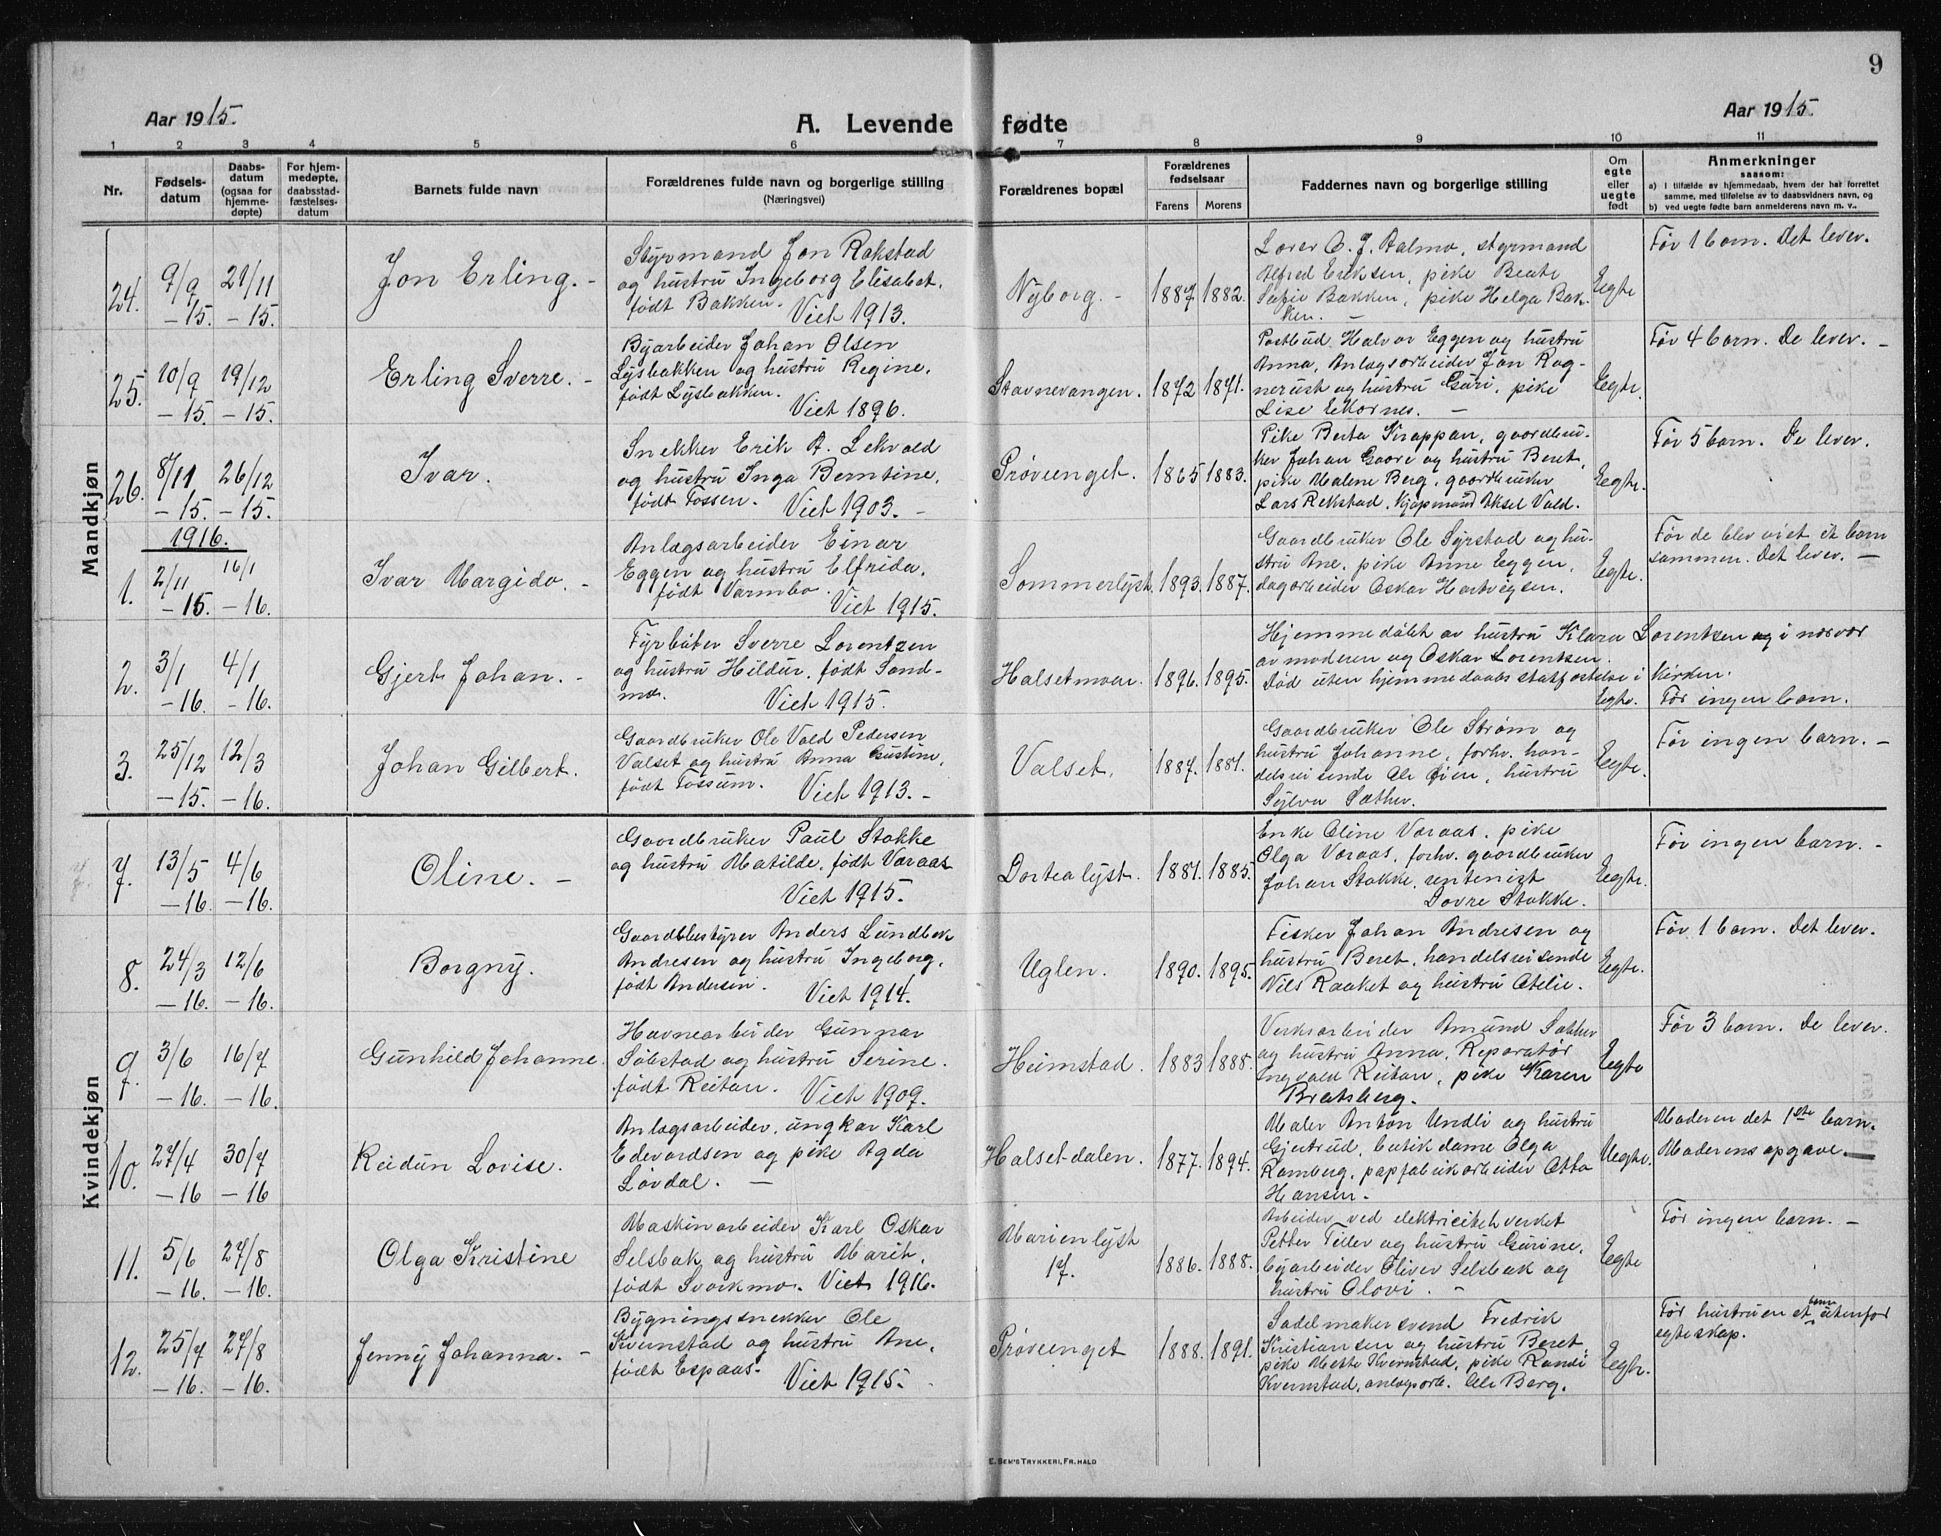 9
Aar 1915.
A. Levende fødte
Aar 1915.
1 2 3 4 5 6 7 8 9 10 11
Nr.
Fødsels-
datum
Daabs-
datum
(ogsaa for
hjemme-
døpte)
For hjem-
medøpte,
daabsstad-
fæstelses-
datum
Barnets fulde navn
Forældrenes fulde navn og borgerlige stilling
(Næringsvei)
Forældrenes bopæl
Forældrenes
fødselsaar
Farens Morens
Faddernes navn og borgerlige stilling
Om
egte
eller
uegte
født
Anmerkninger
saasom:
a) i tilfælde av hjemmedaab, hvem der har forrettet
samme, med tilføielse av to daabsvidners navn, og
b) ved uegte fødte barn anmelderens navn m. v.
Mandkjøn
24.
9/9
-15.
29/11
-15.
Jon Erling. -
Styrmand Jon Rokstad
og hustru Ingeborg Elisabet,
født Bakken. Viet 1913.
Nyborg. -
1887 1882.
Lærer O. J. Aalmo, styrmand
Alfred Eriksen, pike Beate
Sofie Bakken, pike Helga Bak-
ken. -
Egte
Før 1 barn. Det lever.
25.
10/9
-15.
19/12
-15.
Erling Sverre. -
Byarbeider Johan Olsen
Lysbakken og hustru Regine,
født Lysbakken.
Viet 1896.
Stavnevangen.
1872 1871.
Postbud Halvor Eggen og hustru
Anna, Anlægsarbeider Jon Rog-
nerust og hustru Guri, pike
Lise Ekornes. -
Egte.
Før 4 barn. De lever. -
26.
8/11
-15.
26/12
-15.
Ivar.
Snekker Erik A. Lekvold
og hustru Inga Berntine,
født Fossen. Viet 1903. -
Prøvenget.
1865 1883.
Pike Berta Krappan, gaardbru-
ker Johan Gaare og hustru Beret,
pike Malene Berg, gaardbruker
Lars Rekstad, kjøpmand Aksel Vald.
Egte.
Før 5 barn. De lever.
1916.
1.
2/11
-15
16/1
-16.
Ivar Margido. -
Anlægsarbeider Einar
Eggen og hustru Elfrida,
født Varmbo.
Viet 1915.
Sommerlyst
1893. 1887.
Gaardbruker Ole Syrstad og hu-
stru Ane, pike Anne Eggen,
dagarbeider Oskar Hartvigsen.
Egte.
Før de blev viet et barn
sammen. Det lever. -
2.
3/1
-16.
4/1
-16.
Gjert Johan. -
Fyrbøter Sverre Lorentzen
og hustru Hildur, født Sand-
mo. Viet 1915.
Halsetmoen.
1896. 1895.
Hjemmedøbt av hustru Klara Lorentzen i nærvær
av moderen og Oskar Lorentsen.
Død uten hjemmedaabs statfæstelse i kirken.
Egte. Før ingen barn.
3.
25/12
-15.
12/3
-16.
Johan Gilbert.
Gaardbruker Ole Vald Pedersen
Valset og hustru Anna Gustine,
født Fossum. Viet 1913. -
Valset.
1887. 1881.
Gaardbruker Ole Strøm og
hustru Johanne, forhv. han-
delsreisende Ole Øien, hustru
Sylva Sæther.
Egte.
Før ingen barn. -
Kvindekjøn
7.
13/5
-16.
4/6
-16.
Oline. -
Gaardbruker Paul Stokke
og hustru Matilde, født Væraas
Viet 1915.
Dortealyst.
1881. 1885.
Enke Oline Væraas, pike
Olga Væraas, forhv. gaardbruker
Johan Stokke, rentenist
Dovre Stokke.
Egte.
Før ingen barn. -
8.
24/3
-16.
12/6
-16.
Borgny.
Gaardbestyrer Anders Lundbek
Andresen og hustru Ingeborg,
født Andersen. Viet 1914.
Uglen.
1890. 1895.
Fisker Johan Andresen og
hustru Beret, handelsreisende
Nils Raaket og hustru Otelie.
Egte.
Før 1 barn. Det lever.
9.
3/6
-16.
16/7
-16.
Gunhild Johanne.
Havnearbeider Gunnar
Søbstad og hustru Serine,
født Reitan. Viet 1909.
Heimstad.
1883 1888.
Verksarbeider Amund Sæther
og hustru Anna, Reparatør
Ingvald Reitan, pike Karen
Bratsberg.
Egte
Før 3 barn. De lever.
10.
27/4
-16
30/7
-16
Reidun Lovise.
Anlægsarbeider, ungkar Karl
Edvardsen og pike Agda
Løvdal. -
Halsetdalen.
1877. 1894.
Maler Anton Undli og hustru
Gjertrud, butikdame Olga
Ramberg, papfabrikarbeider Otto
Hansen.
Uegte.
Moderen det 1ste barn.
Moderens opgave.-
11.
5/6
-16.
27/8
-16.
Olga Kristine
Maskinarbeider Karl Oskar
Selsbak og hustru Marit,
født Svorkmo. Viet 1916.
Marienlyst
17.
1886. 1888.
Arbeider ved elektricitetsverket
Petter Tiller og hustru Gurine,
byarbeider Oliver Selsbak og
hustru Olovi. -
Egte
Før ingen barn. -
12.
25/7
-16.
27/8
-16.
Jenny Johanna. -
Bygningssnekker Ole
Kvernstad og hustru Ane,
født Espaas. Viet 1915.
Prøvenget
1888. 1891.
Sadelmakersvend Fredrik
Kristiansen og hustru Beret,
pike Mette Kvernstad, pike Randi
Kvernstad, anlægsarb. Ole Berg.
Egte.
Før hustruen et barn utenfor
egteskap.
E. SEM'S TRYKKERI, FR.HALD